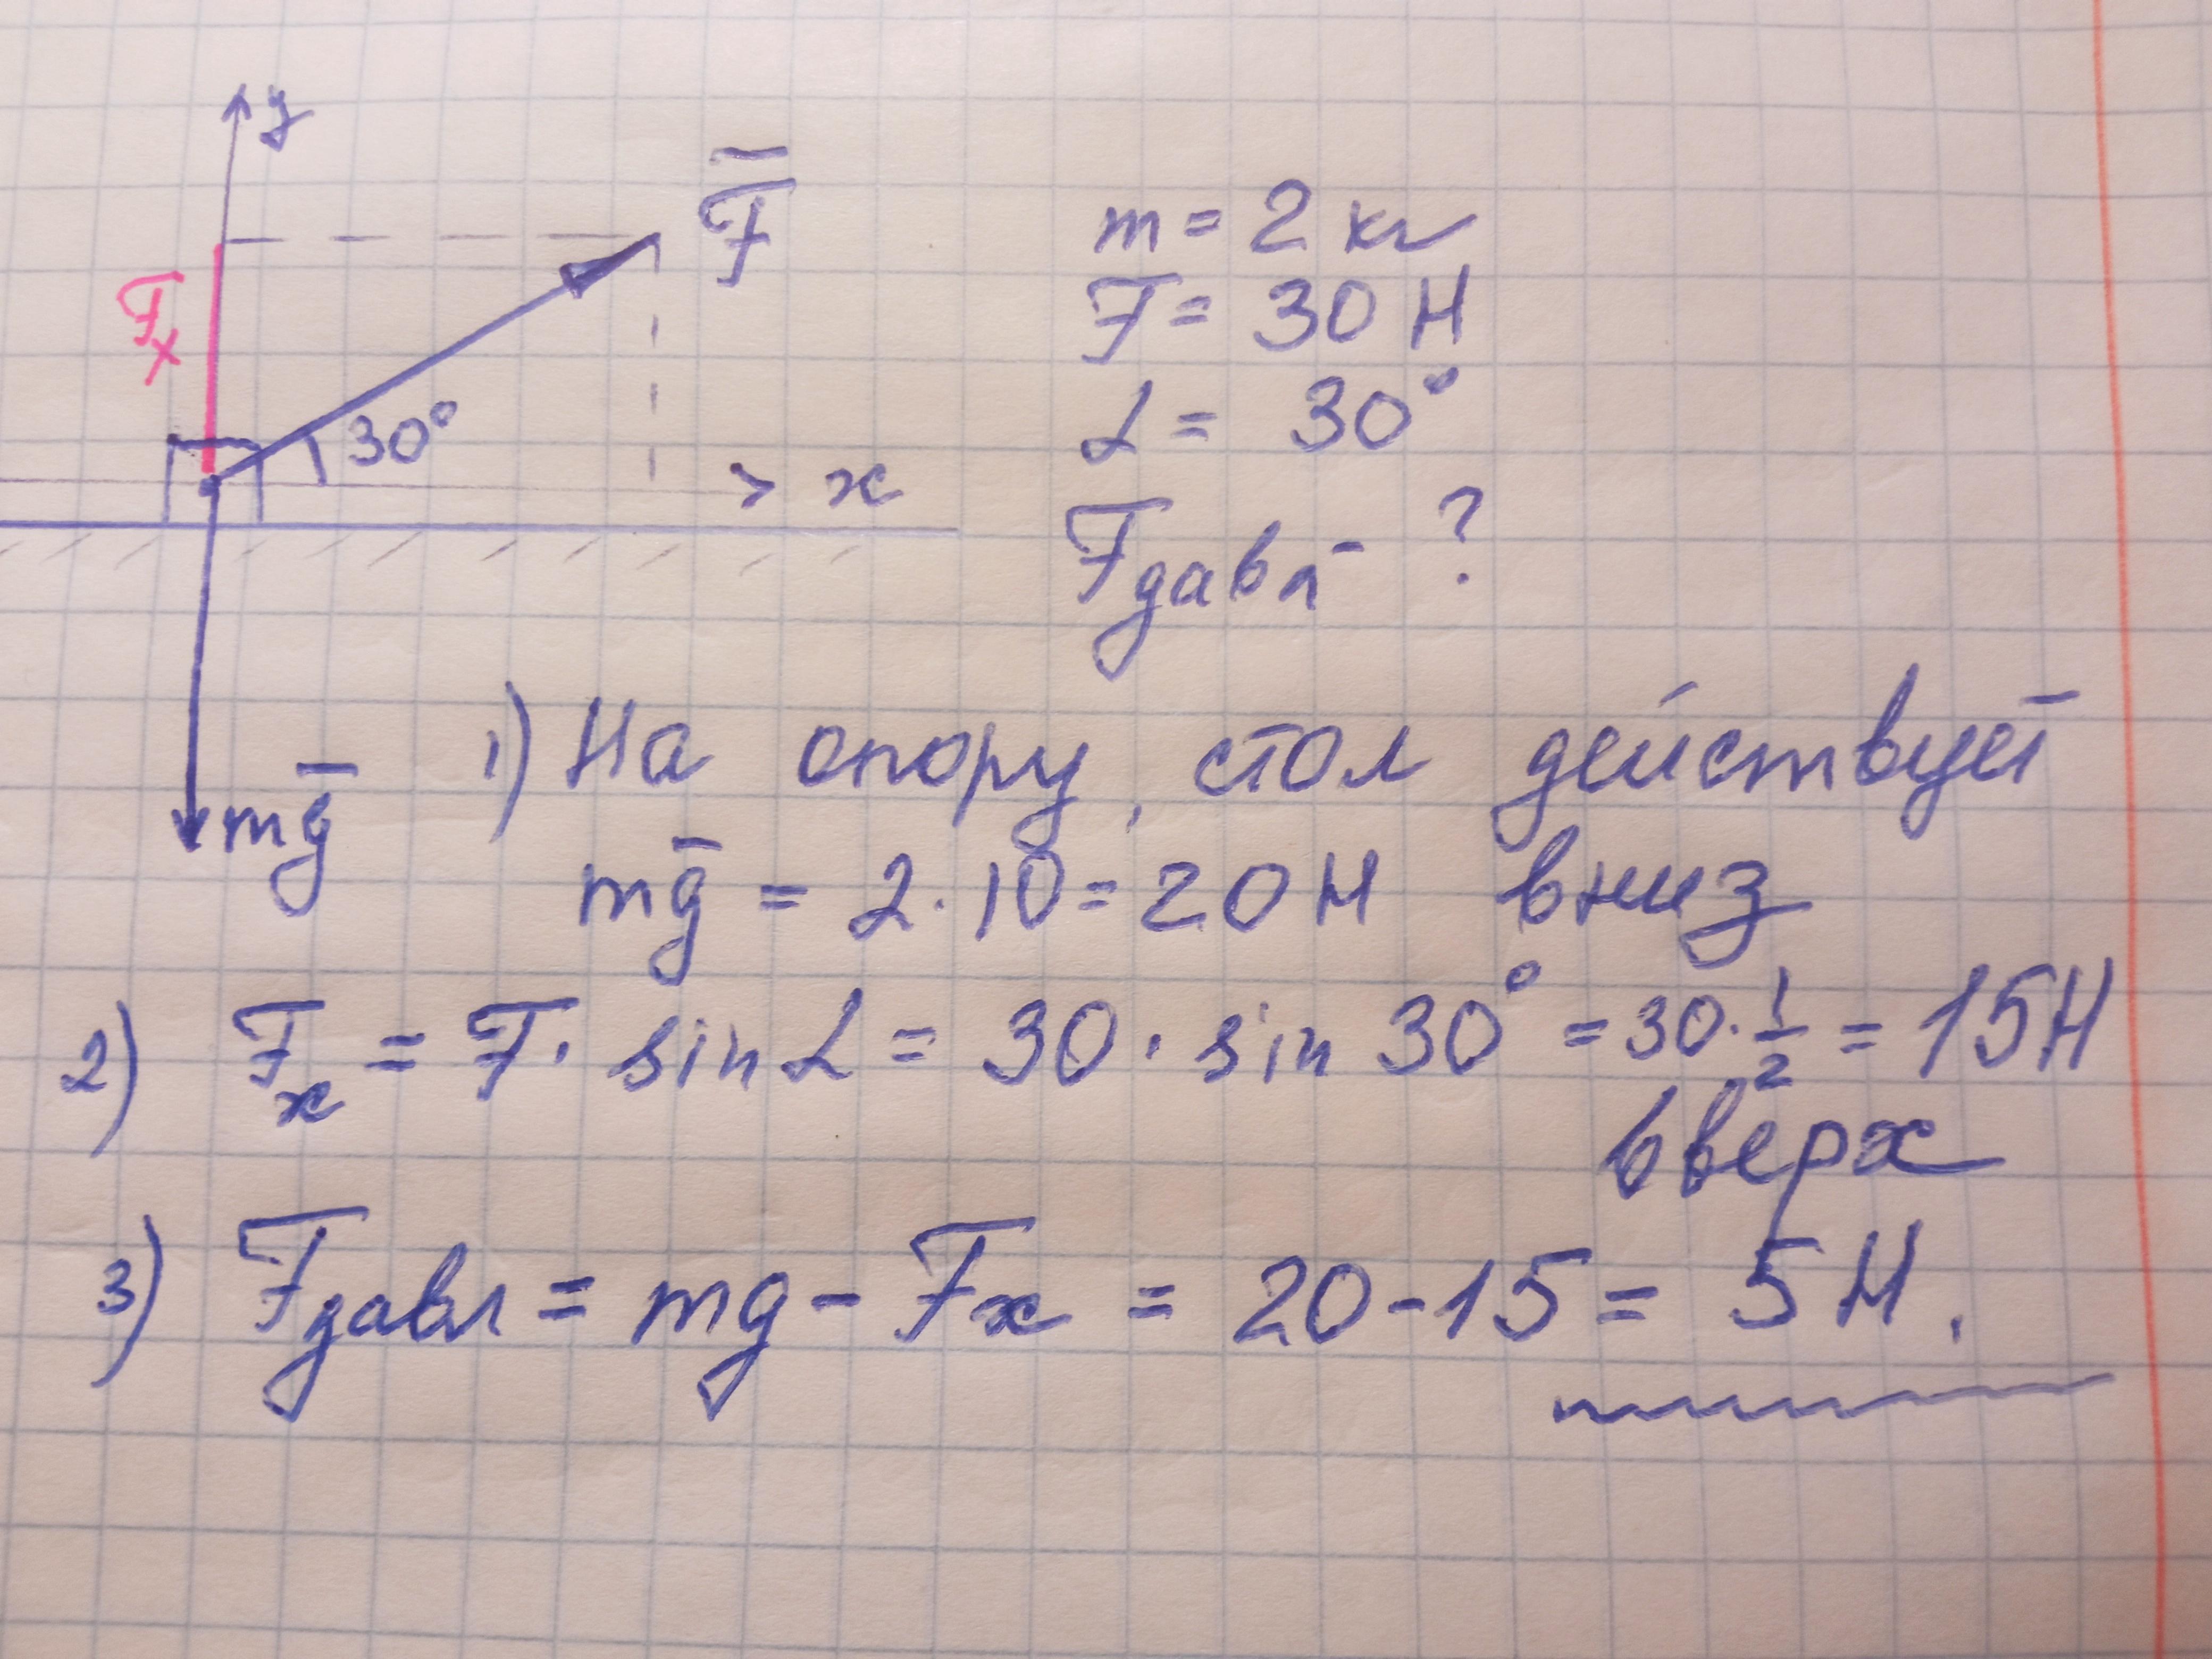 y
F̅
Fx
30°
x
mg̅
m = 2 кг
F = 30 Н
α = 30°
Fдавл - ?
1) На опору, стол действует
mg̅ = 2·10 = 20 Н вниз
2) Fx = F · sin α = 30 · sin 30° = 30 · 1/2 = 15 Н
вверх
3) Fдавл = mg - Fx = 20 - 15 = 5 Н.